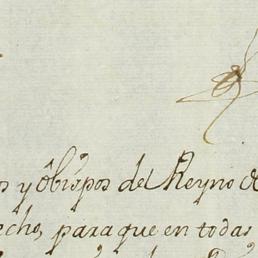 os y óbispos del Reyno de
echo, para que en todas